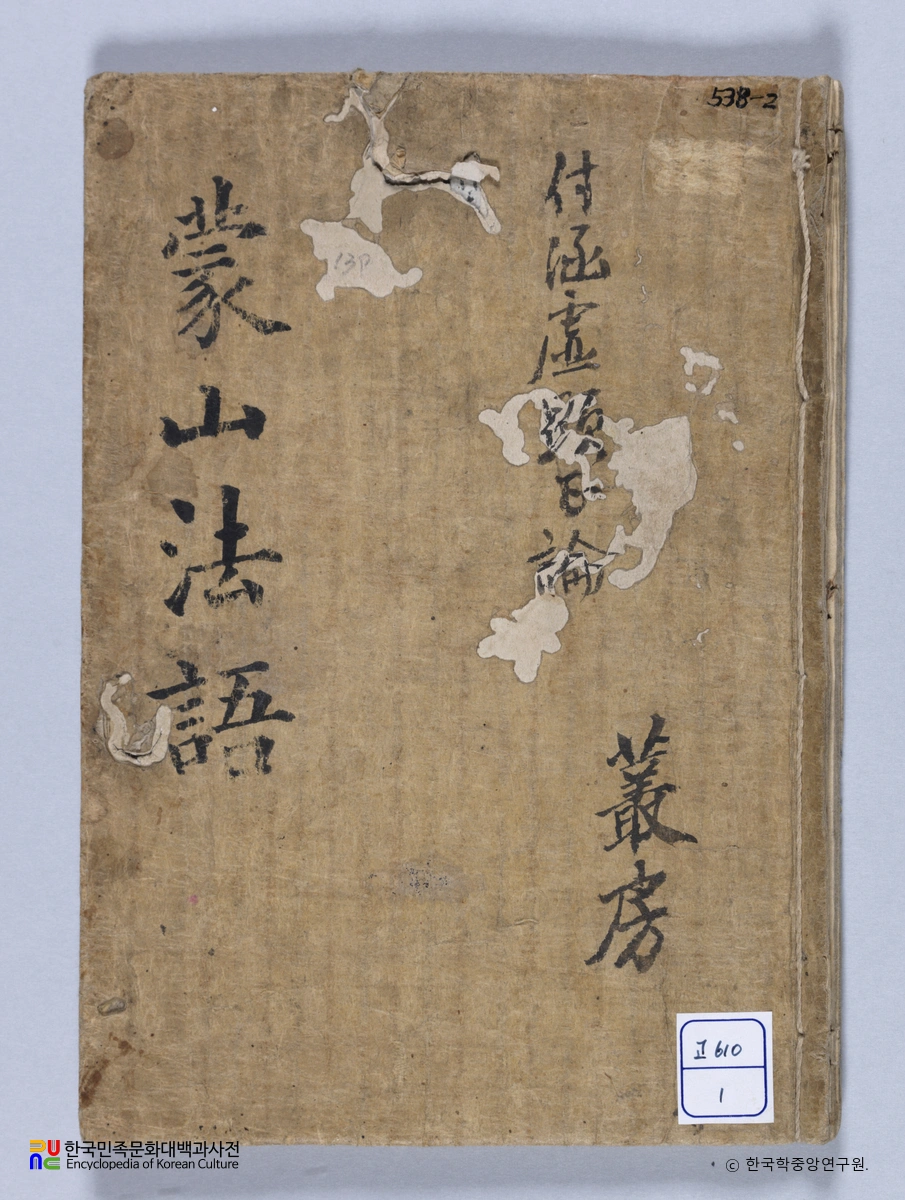 538-2
付涵虛顯正論
叢房
蒙山法語
고610
1
한국민족문화대백과사전
Encyclopedia of Korean Culture
ⓒ 한국학중앙연구원.